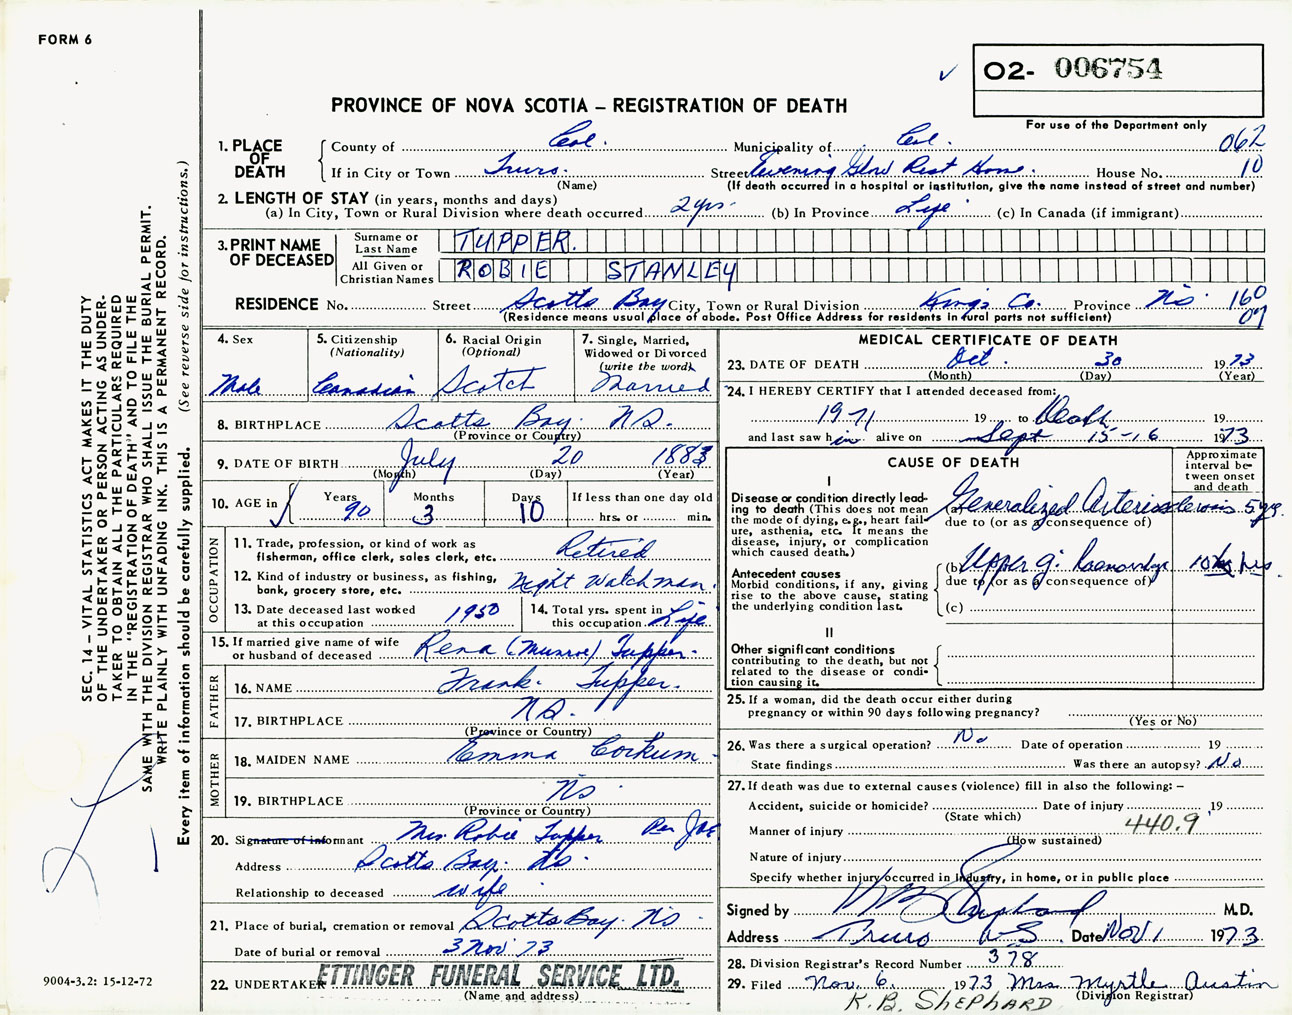 FORM 6
O2- 006754
PROVINCE OF NOVA SCOTIA – REGISTRATION OF DEATH
For use of the Department only
1. PLACE OF DEATH
County of Col. Municipality of Col. 062
If in City or Town Truro. Street Evening Glow Rest Home. House No. 10
(Name) (If death occurred in a hospital or institution, give the name instead of street and number)
2. LENGTH OF STAY (in years, months and days)
(a) In City, Town or Rural Division where death occurred 2 yrs. (b) In Province Life (c) In Canada (if immigrant)
3. PRINT NAME OF DECEASED
Surname or Last Name TUPPER.
All Given or Christian Names ROBIE STANLEY
RESIDENCE No. Street Scotts Bay City, Town or Rural Division Kings Co. Province NS 160
(Residence means usual place of abode. Post Office Address for residents in rural parts not sufficient) 07
4. Sex Male
5. Citizenship (Nationality) Canadian
6. Racial Origin (Optional) Scotch
7. Single, Married, Widowed or Divorced (write the word) Married
8. BIRTHPLACE Scotts Bay. NS.
(Province or Country)
9. DATE OF BIRTH July 20 1883
(Month) (Day) (Year)
10. AGE in Years 90 Months 3 Days 10 If less than one day old
hrs. or min.
OCCUPATION
11. Trade, profession, or kind of work as fisherman, office clerk, sales clerk, etc. Retired
12. Kind of industry or business, as fishing, bank, grocery store, etc. Night Watchman.
13. Date deceased last worked at this occupation 1950
14. Total yrs. spent in this occupation Life
15. If married give name of wife or husband of deceased Rena (Munroe) Tupper.
FATHER
16. NAME Frank. Tupper.
17. BIRTHPLACE NS.
(Province or Country)
MOTHER
18. MAIDEN NAME Emma Corkum
19. BIRTHPLACE NS
(Province or Country)
20. Signature of informant Mrs. Robie Tupper Per
Address Scotts Bay. NS.
Relationship to deceased wife
21. Place of burial, cremation or removal Scotts Bay. NS
Date of burial or removal 3 Nov 73
22. UNDERTAKER ETTINGER FUNERAL SERVICE LTD.
(Name and address)
MEDICAL CERTIFICATE OF DEATH
23. DATE OF DEATH Oct. 30 1973
(Month) (Day) (Year)
24. I HEREBY CERTIFY that I attended deceased from:
1971 19 to Death 19
and last saw him alive on Sept 15-16 1973
CAUSE OF DEATH
Approximate interval between onset and death
I
Disease or condition directly leading to death (This does not mean the mode of dying, e.g., heart failure, asthenia, etc. It means the disease, injury, or complication which caused death.)
(a) Generalized 5 yrs.
due to (or as a consequence of)
Antecedent causes
Morbid conditions, if any, giving rise to the above cause, stating the underlying condition last.
(b) Upper
due to (or as a consequence of)
(c)
II
Other significant conditions
contributing to the death, but not related to the disease or condition causing it.
25. If a woman, did the death occur either during pregnancy or within 90 days following pregnancy?
(Yes or No)
26. Was there a surgical operation? No Date of operation 19
State findings Was there an autopsy? No
27. If death was due to external causes (violence) fill in also the following: –
Accident, suicide or homicide? Date of injury 19
(State which)
Manner of injury 440.9
(How sustained)
Nature of injury
Specify whether injury occurred in industry, in home, or in public place
Signed by M.D.
Address Truro N.S. Date Nov 1 1973
28. Division Registrar's Record Number 378
29. Filed Nov. 6. 1973 Mrs Myrtle Austin
(Division Registrar)
K.B. SHEPHARD
SEC. 14 – VITAL STATISTICS ACT MAKES IT THE DUTY
OF THE UNDERTAKER OR PERSON ACTING AS UNDERTAKER TO OBTAIN ALL THE PARTICULARS REQUIRED
IN THE "REGISTRATION OF DEATH" AND TO FILE THE
SAME WITH THE DIVISION REGISTRAR WHO SHALL ISSUE THE BURIAL PERMIT.
WRITE PLAINLY WITH UNFADING INK. THIS IS A PERMANENT RECORD.
Every item of information should be carefully supplied. (See reverse side for instructions.)
9004-3.2: 15-12-72